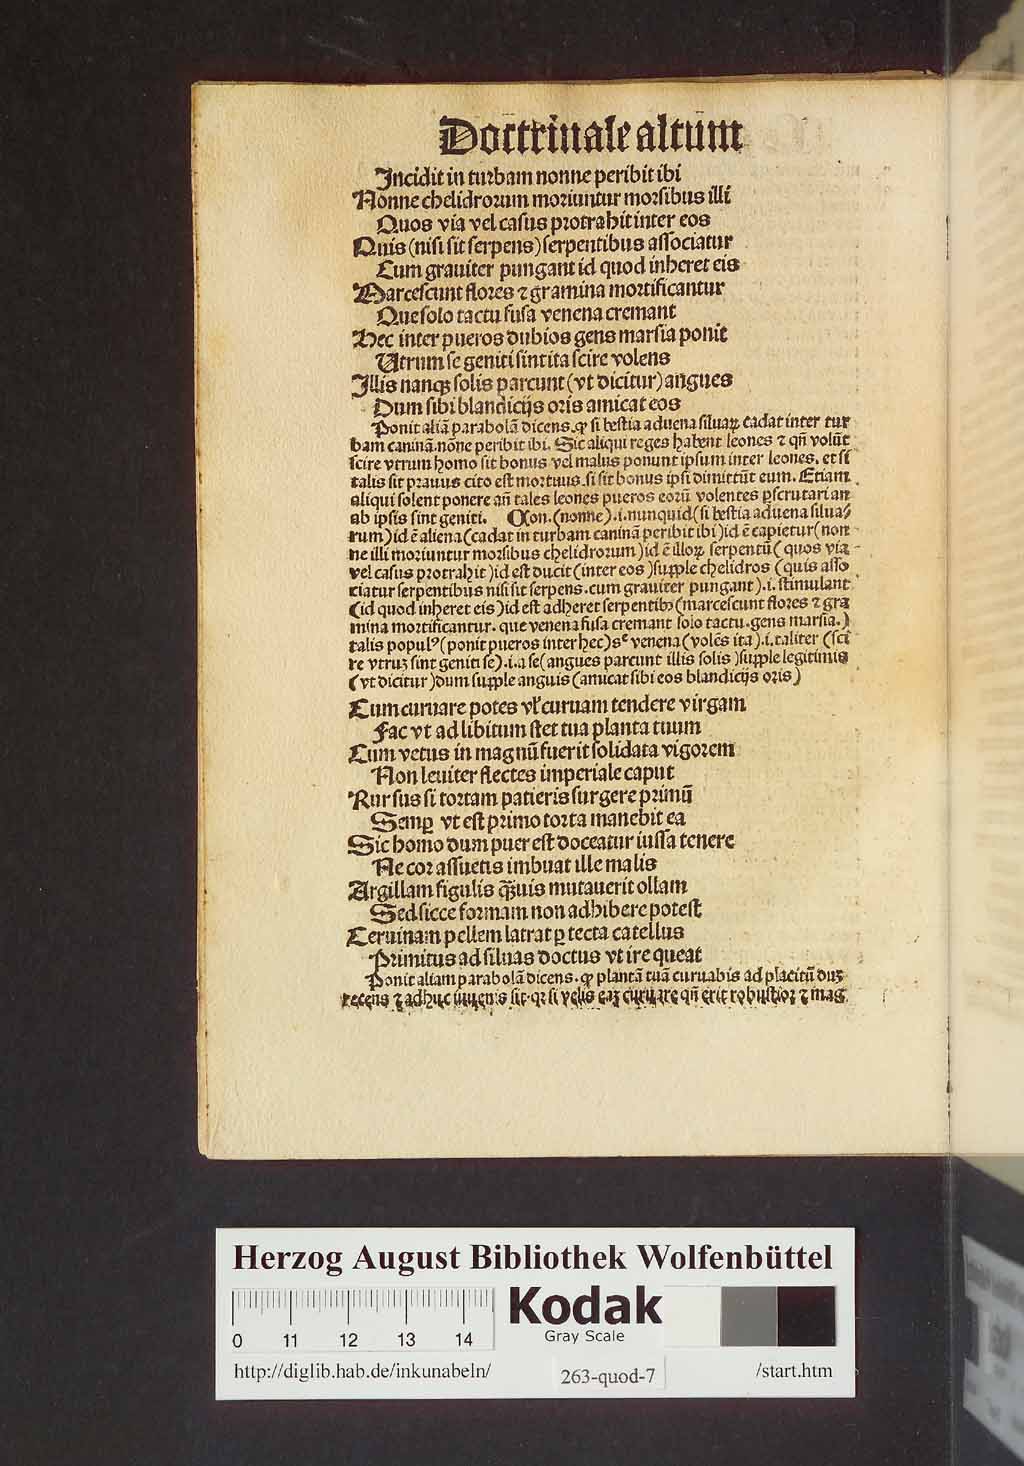 Doctrinale altum̄
Incidit in turbam nonne peribit ibi
Nonne chelidrorum moriuntur morsibus illi
Quos via vel casus protrahit inter eos
Quis (nisi sit serpens) serpentibus associatur
Cum grauiter pungant id quod inheret eis
Marcescunt flores ⁊ gramina mortificantur
Que solo tactu fusa venena cremant
Hec inter pueros dubios gens marsia ponit
Utrum se geniti sint ita scire volens
Illis nanqꝫ solis parcunt (vt dicitur) angues
Dum sibi blandicijs oris amicat eos
Ponit aliā parabolā dicens. ꝙ si bestia aduena siluaꝝ cadat inter tur
bam caninā. nōne peribit ibi. Sic aliqui reges habent leones ⁊ qn̄ volūt
scire vtrum homo sit bonus vel malus ponunt ipsum inter leones. et si
talis sit prauus cito est mortuus. si sit bonus ipsi dimittūt eum. Etiam
aliqui solent ponere an̄ tales leones pueros eorū volentes ꝑscrutari an
ab ipsis sint geniti. Con. (nonne) .i. nunquid (si bestia aduena silua⸗
rum) id ē aliena (cadat in turbam caninā peribit ibi) id ē capietur (non
ne illi moriuntur morsibus chelidrorum) id ē illoꝝ serpentū (quos via
vel casus protrahit) id est ducit (inter eos) supple chelidros (quis asso
ciatur serpentibus nisi sit serpens. cum grauiter pungant) .i. stimulant
(id quod inheret eis) id est adheret serpentibꝫ (marcescunt flores ⁊ gra
mina mortificantur. que venena fusa cremant solo tactu. gens marsia.)
talis populꝰ (ponit pueros inter hec) sᶜ venena (volēs ita) .i. taliter (sci
re vtruꝫ sint geniti se) .i. a se (angues parcunt illis solis) supple legitimis
(vt dicitur) dum supple anguis (amicat sibi eos blandicijs oris)
Cum curuare potes vl̓ curuam tendere virgam
Fac vt ad libitum stet tua planta tuum
Cum vetus in magnū fuerit solidata vigorem
Non leuiter flectes imperiale caput
Rursus si tortam patieris surgere primū
Semꝑ vt est primo torta manebit ea
Sic homo dum puer est doceatur iussa tenere
Ne cor assuetis imbuat ille malis
Argillam figulis qꝫuis mutauerit ollam
Sed sicce formam non adhibere potest
Ceruinam pellem latrat ꝑ tecta catellus
Primitus ad siluas doctus vt ire queat
Ponit aliam parabolā dicens. ꝙ plantā tuā curuabis ad placitū duꝫ
recens ⁊ adhuc iuuenis sit. qꝛ si velis eaꝫ curuare qn̄ erit robustior ⁊ mag
Herzog August Bibliothek Wolfenbüttel
0 11 12 13 14
Kodak
Gray Scale
http://diglib.hab.de/inkunabeln/ 263-quod-7 /start.htm